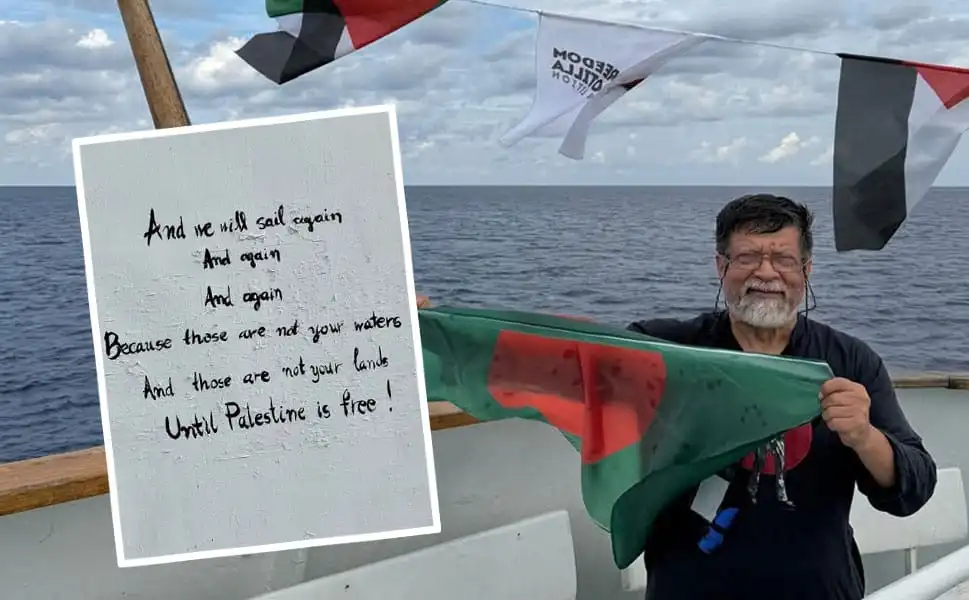 And we will sail again
And again
And again
Because those are not your waters
And those are not your lands
Until Palestine is free!